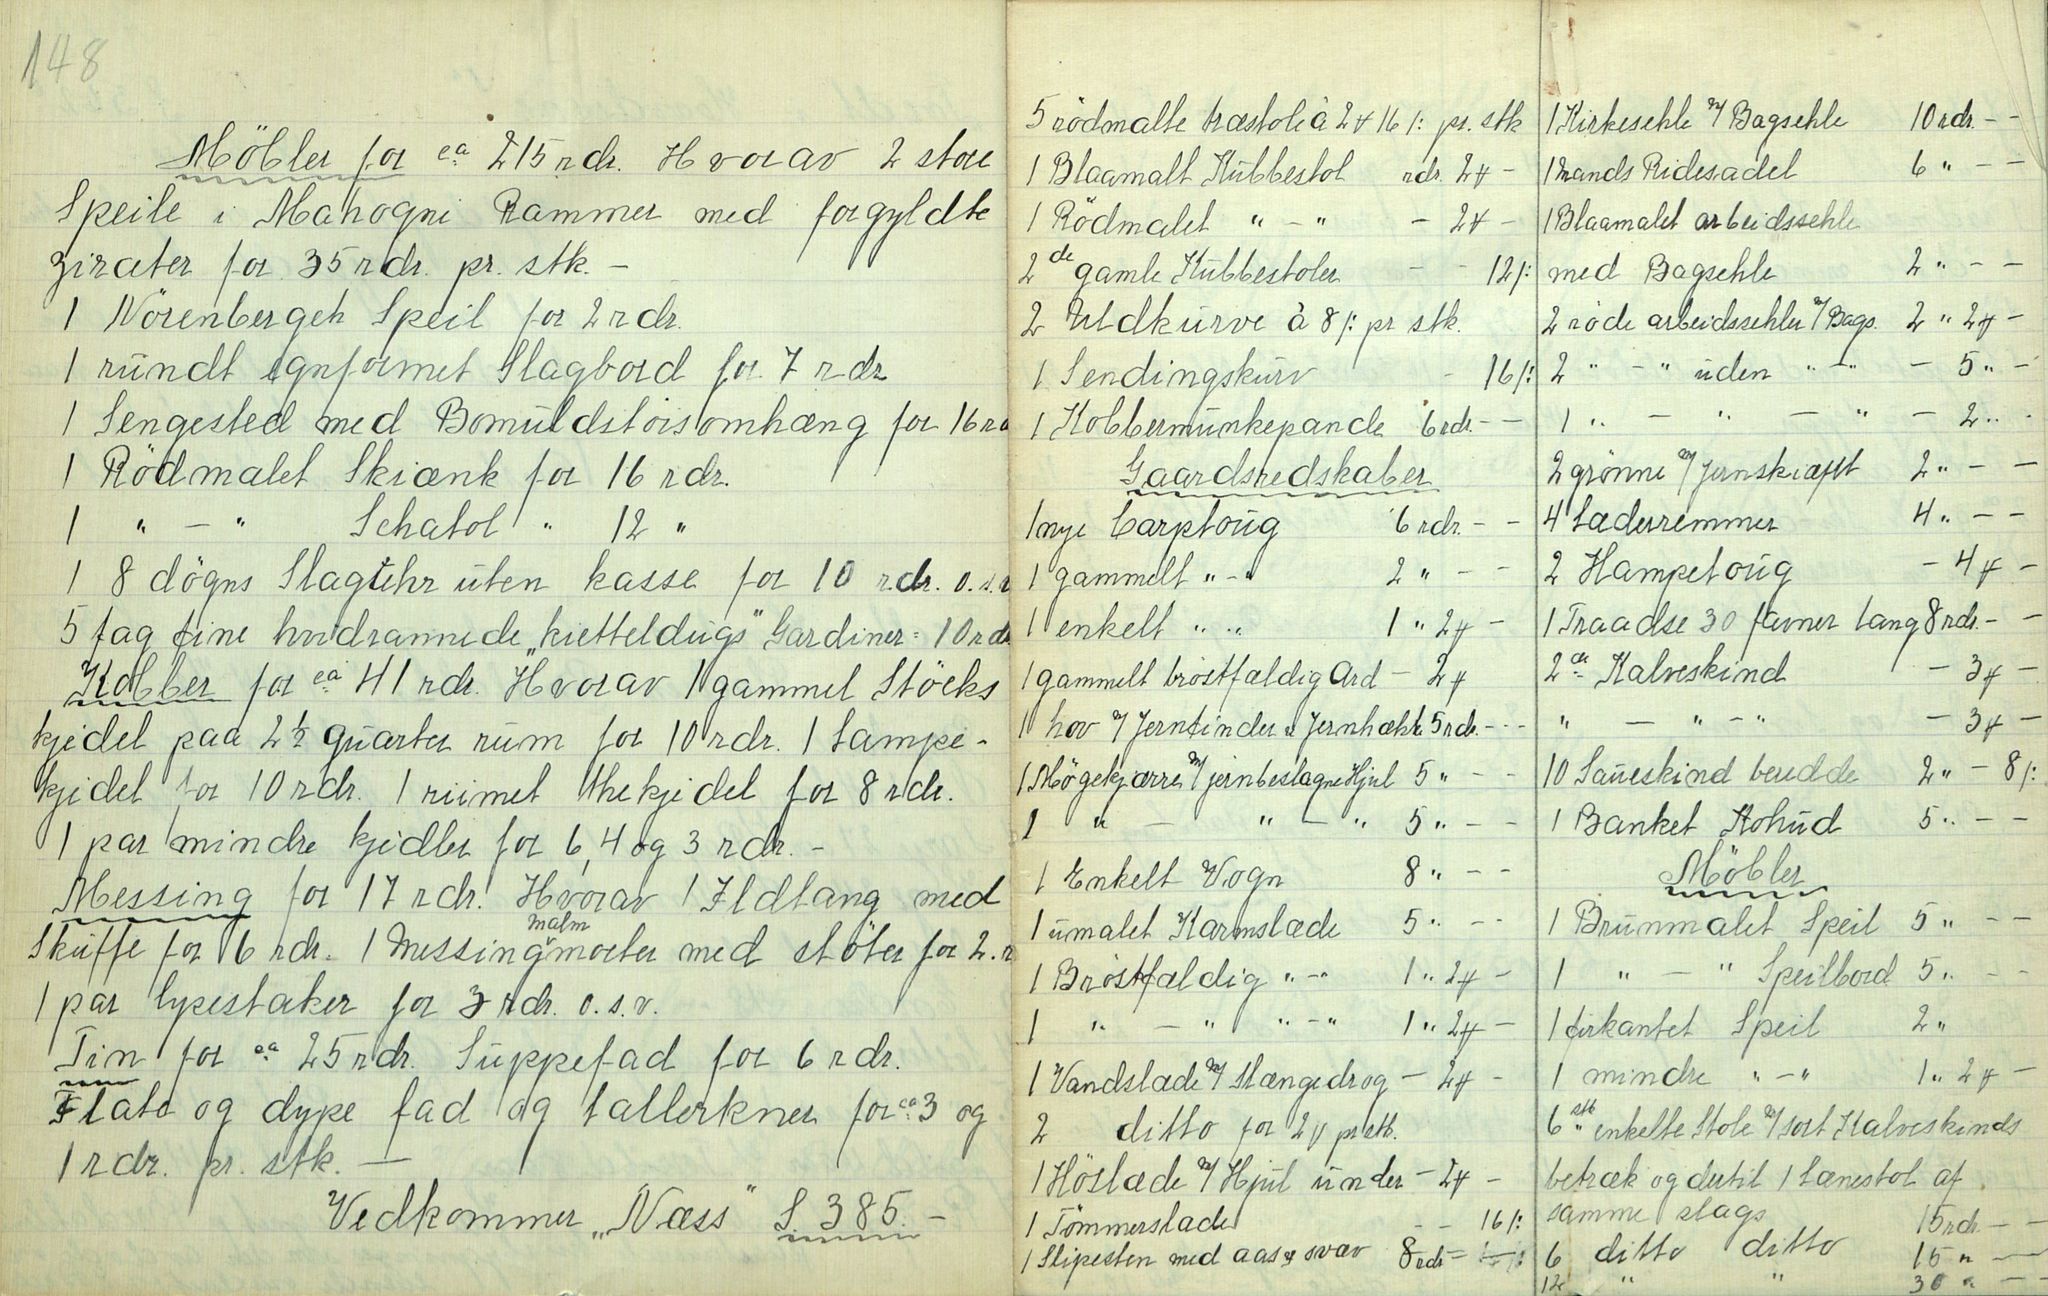 148
Möbler for ca 215 rdr. Hvorav 2 store
Speile i Mahogni Rammer med forgyldte
zirater for 35 rdr. pr. stk. –
1 Nörenbergeh Speil for 2 rdr.
1 rundt egnformet Slagbord for 7 rdr
1 Sengested med Bomuldstöisomhæng for 16 rd
1 Rödmalet Skiænk for 16 rdr.
1 " – " Schatol " 12 "
1 8 dögns Slaguhr uten kasse for 10 rdr. o.s.v
5 fag fine hvidrannede „kietteldugs" Gardiner = 10 rdr
Kobber for ca 41 rdr. Hvorav 1 gammel Stöcks
kjedel paa 2½ quarter rum for 10 rdr. 1 Lampe-
kjedel for 10 rdr. 1 riimet thekjedel for 8 rdr.
1 par mindre kjedler for 6, 4 og 3 rdr. –
Messing for 17 rdr. Hvorav 1 Ildtang med
Skuffe for 6 rdr. 1 Messing malm morter med stöter for 2. r
1 par lysestaker for 3 rdr. o.s.v.
Tin for ca 25 rdr. Suppefad for 6 rdr.
Flate og dype fad og tallerkner for ca 3 og
1 rdr. pr. stk. —
Vedkommer „Næss" S. 385. –
5 rödmalte træstole à 2 ४ 16 /: pr. stk
1 Blaamalt Kubbestol rdr. 2 ४ –
1 Rödmalet " – " – 2 ४ –
2 de gamle Kubbestoler – – 12 /:
2 Uldkurve à 8 /: pr stk.
1 Sendingskurv – 16 /:
1 Kobbermunkepande 6 rdr. – –
Gaardsredskaber
1 nye Carptoug 6 rdr. – –
1 gammelt " – " 2 " – –
1 enkelt " " 1 " 2 ४ –
1 gammelt bröstfældig Ard – 2 ४
1 hov m/ Jerntinder & Jernhækte 5 rdr. – –
1 Mögekjærre m/ jernbeslagne Hjul 5 " – –
1 " – " – " 5 " – –
1 Enkelt Vogn 8 " – –
1 umalet Karmslæde 5 " – –
1 Bröstfældig " – " 1 " 2 ४ –
1 " – " " – " 1 " 2 ४ –
1 Vandslæde m/ Slængedrog – 2 ४ –
2 ditto for 2 ४ pr stk.
1 Höslæde m/ Hjul under – 2 ४ –
1 Tömmerslæde – – 16 /:
1 Slipesten med aas & svæv 8 rdr
1 Kirkesehle m/ Bagsehle 10 rdr. – –
1 Mands Ridesadel 6 " – –
1 Blaamalet arbeidssehle
med Bagsehle 2 " – –
2 röde arbeidssehler m/ Bags. 2 " 2 ४ –
2 " – " uden " – " – 5 " –
1 " – " – " – 2 " .
2 grönne m/ Jernskiæft 2 " – –
4 Læderremmer 4 " – –
2 Hampetoug – 4 ४ –
1 Traadse 30 favner lang 8 rdr. – –
2 de Kalveskind – 3 ४ –
" – " – " – 3 ४ –
10 Saueskind beredde 2 " – 8 /:
1 Banket Kohud 5 " – –
Möbler
1 Brunmalet Speil 5 " – –
1 " – " Speilbord 5 " – –
1 firkantet Speil 2 "
1 mindre " – " 1 " 2 ४ –
6 stk enkelte Stole m/ sort Kalveskinds
betræk og dertil 1 Lænestol af
samme slags 15 rdr – –
6 ditto ditto 15 " –
12 " " 30 " – –